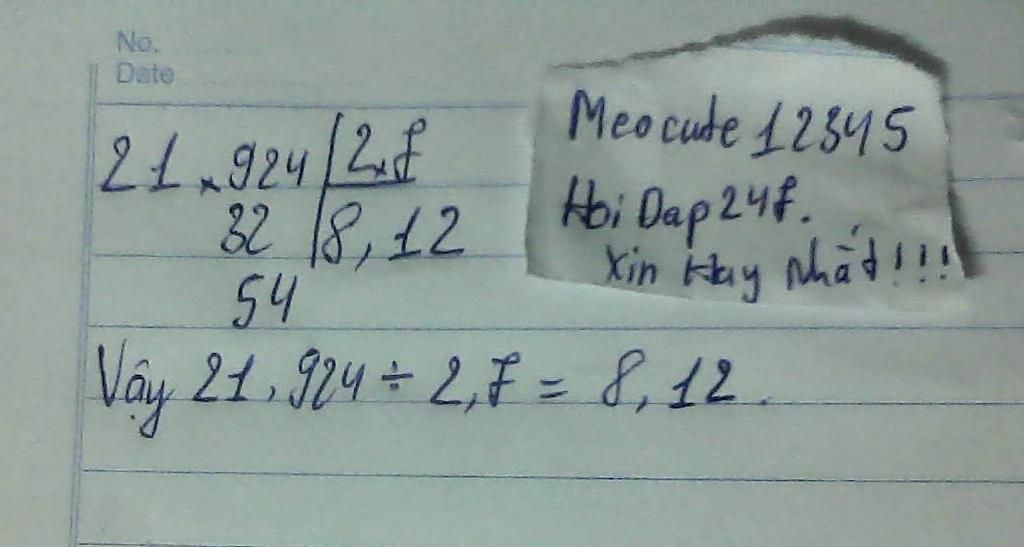 No.
Date
21,924 | 2,7
32 | 8,12
54
Vậy 21,924 ÷ 2,7 = 8,12.
Meocute 12345
Hoi Dap 247.
Xin Hay Nhất!!!